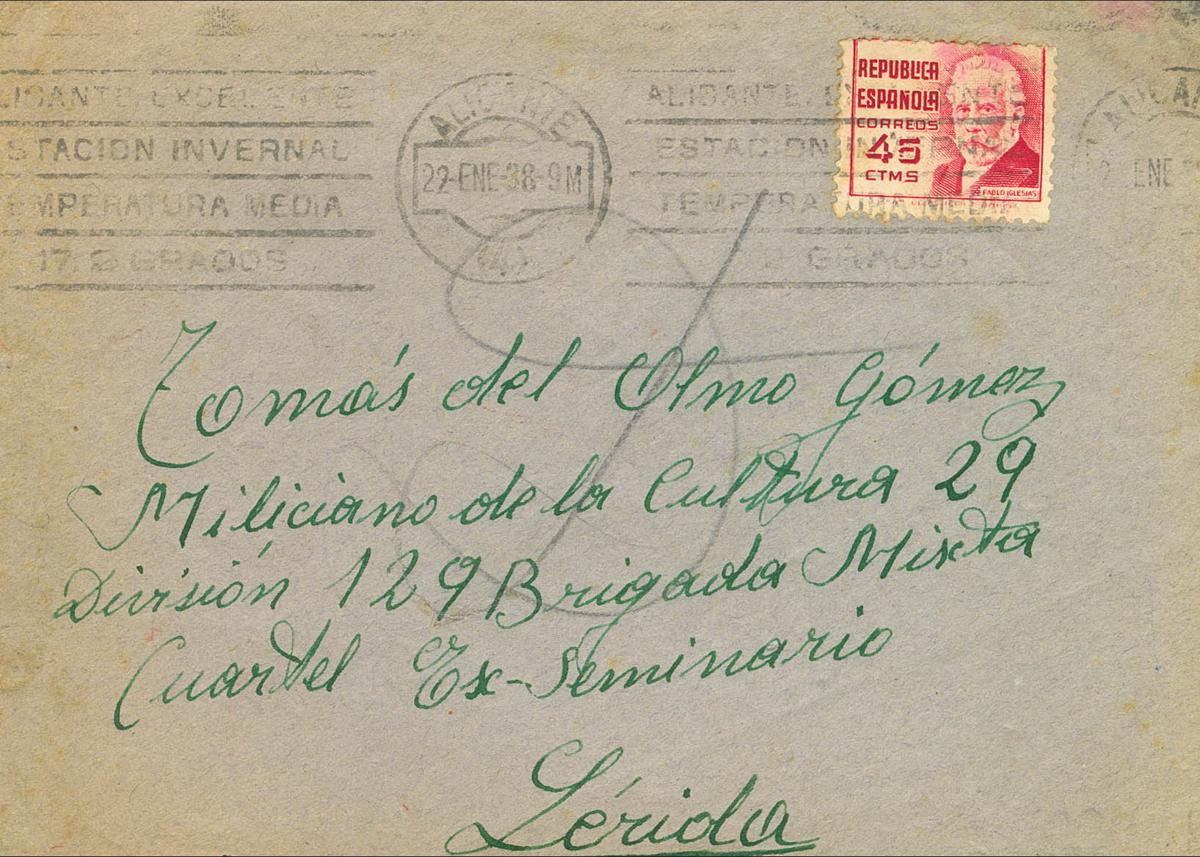 LICANTE. EXCELENTE
STACION INVERNAL
EMPERATURA MEDIA
17,2 GRADOS
ALICANTE
22-ENE-38-9M
ALICANTE. EX
ESTACION INVERNAL
TEMPERATURA MEDIA
2 GRADOS
REPUBLICA
ESPAÑOLA
CORREOS
45
CTMS
PABLO IGLESIAS
ALICA
2 ENE
Tomás del Olmo Gómez
Miliciano de la Cultura 29
División 129 Brigada Mixta
Cuartel Ex-Seminario
Lérida